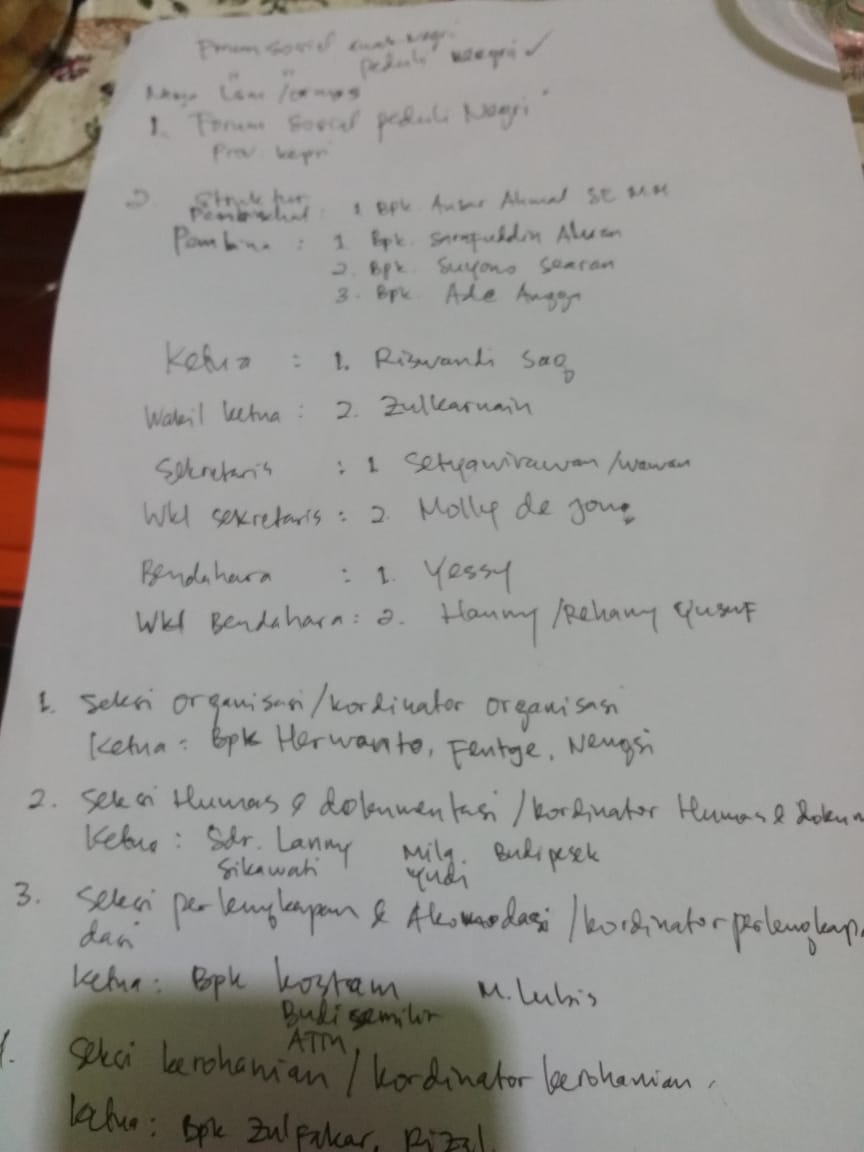 Forum sosial anak Negri
peduli negri ✓
Nama Lsm / ormas
1. Forum Sosial peduli Negri
Prov. kepri
2. Struktur
: 1 Bpk. Ansar Ahmad SE MM
Pembina : 1. Bpk. Sarapuddin Aluan
2. Bpk. Suyono Saeran
3. Bpk. Ade Angga
Ketua : 1. Riswandi Saq
Wakil ketua : 2. Zulkarnain
Sekretaris : 1 Setyawirawan /wawan
Wkl sekretaris : 2. Molly de jong
Bendahara : 1. Yessy
Wkl Bendahara : 2. Hanny /Rehany Yusuf
1. Seksi organisasi/kordinator organisasi
Ketua : Bpk Herwanto, Fentge, Nengsi
2. Seksi Humas & dokumentasi /kordinator Humas & dokum
Ketua : Sdr. Lanny Mila. Budi pesek
Sikawati Yudi
3. Seksi perlengkapan & Akomodasi /kordinator perlengkap
dasi
Ketua : Bpk koztam M. Lubis
Budi semilir
ATM
Seksi kerohanian / kordinator kerohanian.
Ketua : Bpk Zulfakar, Rizal